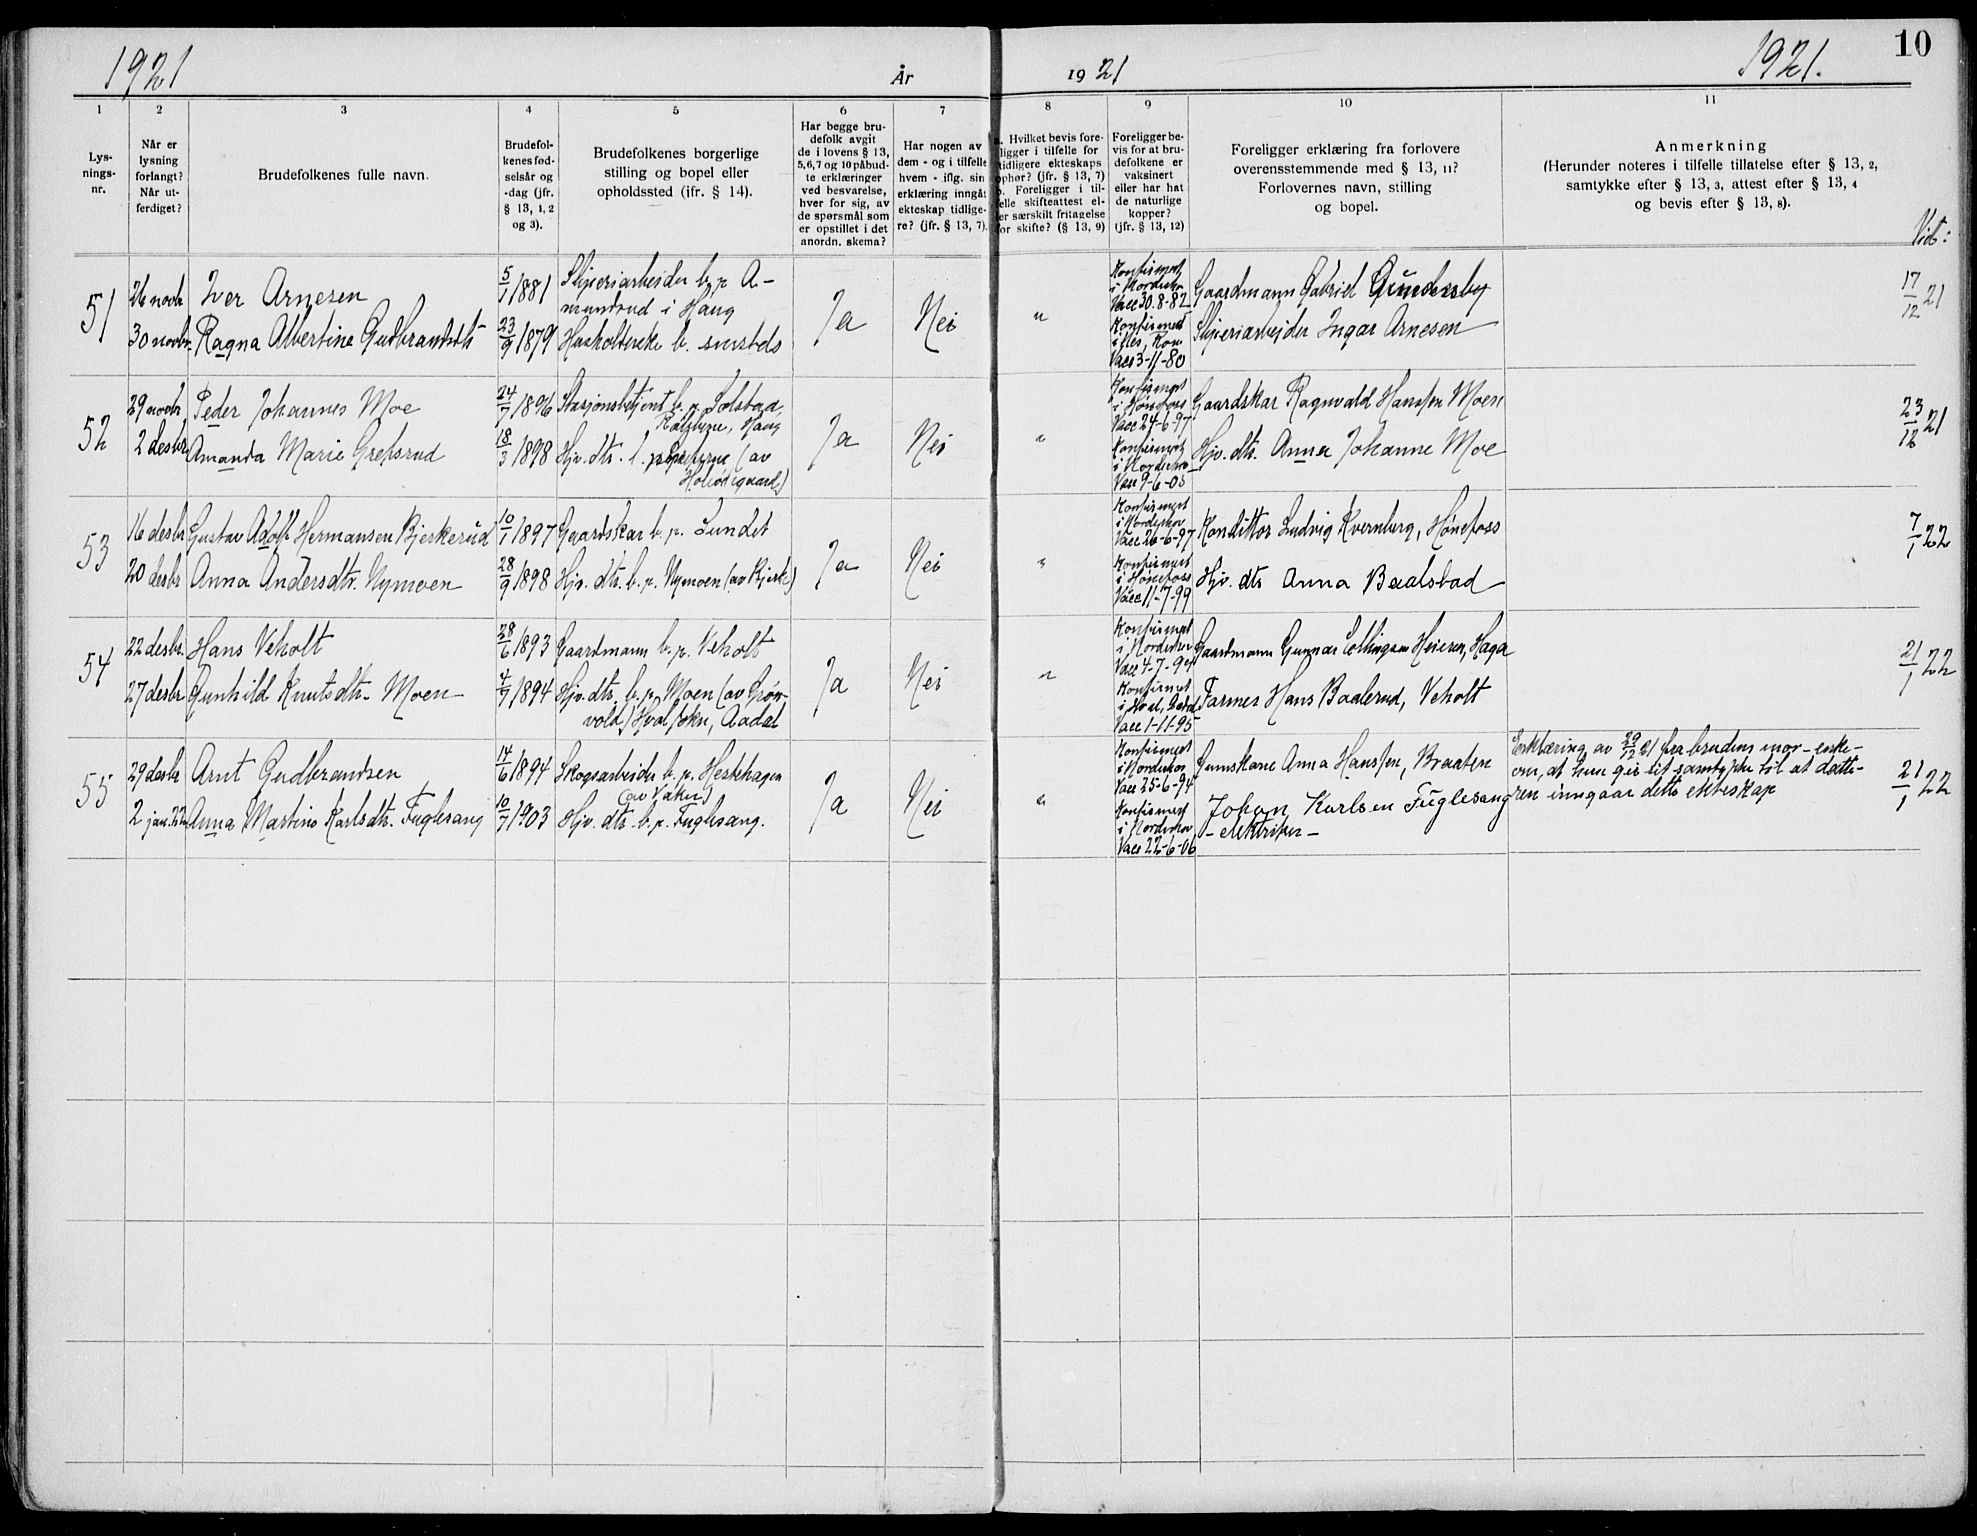 1921
År
1921
1921.
10
1
2
3
4
5
6
7
8
9
10
11
Lys-
nings-
nr.
Når er
lysning
forlangt?
Når ut-
ferdiget?
Brudefolkenes fulle navn.
Brudefol-
kenes fød-
selsår og
-dag (jfr.
§ 13, 1, 2
og 3).
Brudefolkenes borgerlige
stilling og bopel eller
opholdssted (jfr. § 14).
Har begge bru-
defolk avgit
de i lovens § 13,
5,6,7 og 10 påbud-
te erklæringer
ved besvarelse,
hver for sig, av
de spørsmål som
er opstillet i det
anordn. skema?
Har nogen av
dem - og i tilfelle
hvem - iflg. sin
erklæring inngåt
ekteskap tidlige-
re? (jfr. § 13, 7).
a. Hvilket bevis fore-
ligger i tilfelle for
tidligere ekteskaps
ophør? (jfr. § 13, 7)
b. Foreligger i til-
felle skifteattest el-
ler særskilt fritagelse
for skifte? (§ 13, 9)
Foreligger be-
vis for at bru-
defolkene er
vaksinert
eller har hat
de naturlige
kopper?
(jfr. § 13, 12)
Foreligger erklæring fra forlovere
overensstemmende med § 13, 11?
Forlovernes navn, stilling
og bopel.
Anmerkning
(Herunder noteres i tilfelle tillatelse efter § 13, 2,
samtykke efter § 13, 3, attest efter § 13, 4
og bevis efter § 13, 8).
51
26 novbr
30 novbr.
Iver Arnesen
Ragna Albertine Gudbrandsdt.
5/1 1881
23/9 1879
Sliperiarbeider b. p. A-
mundrud i Haug
Husholderske b. smsteds
Ja
Nei
"
Konfirmert
i Norderhov
Vacc 30-8-82
Konfirmert
i Nes, Rom.
Vacc 3-11-80
Gaardmann Gabriel Gundersby
Sliperiarbeider Ingar Arnesen
17/12 21
52
29 novbr
2 desbr
Peder Johannes Moe
Amanda Marie Grefsrud
24/7 1896
18/3 1898
Stasjonsbetjent b. p. Solstad,
Haug
Hjv. dtr. b. p.
Ja
Nei
"
Konfirmert
i Hønefoss
Vacc 24-6-97
Konfirmert
i Norderhov
Vacc 9-6-05
Gaardskar Ragnvald Hanssen Moen
Hjv. dtr. Anna Johanne Moe
23/12 21
53
16 desbr
20 desbr
Gustav Adolf Hermansen Bjerkerud
Anna Andersdtr. Nymoen
10/1 1897
28/9 1898
Gaardskar b. p. Lundet
Hjv. dtr. b. p. Nymoen (av Bjerke)
Ja
Nei
"
Konfirmert
i Norderhov
Vacc 26-6-97
Konfirmert
i Hønefoss
Vacc 11-7-99
Konditor Ludvig Kvernberg, Hønefoss
Hjv. dtr Anna Baalstad
7/1 22
54
22 desbr.
27 desbr
Hans Veholt
Gunhild Knutsdtr. Moen
28/6 1893
4/7 1894
Gaardmann b. p. Veholt
Hjv. dtr. b. p. Moen (av Grøn-
vold) Hval sokn, Aadal
Ja
Nei
"
Konfirmert
i Norderhov
Vacc 4-7-94
Konfirmert
i Hval, Aadal
Vacc 1-11-95
Gaardmann Gunnar Heieren, Haga
Farmer Hans Baalerud, Veholt
21/1 22
55
29 desbr
2 jan. 22
Arnt Gudbrandsen
Anna Martine Karlsdtr. Fuglesang
14/6 1894
10/7 1903
Skogsarbeider b. p. Hestehagen
(av Vaker)
Hjv. dtr. b. p. Fuglesang.
Ja
Nei
"
Konfirmert
i Norderhov
Vacc 25-6-94
Konfirmert
i Norderhov
Vacc 22-6-06
Anna Hanssen, Braaten
Johan Karlsen Fuglesang
- elektriker -
Erklæring av 29/12 21 fra brudens mor - enke -
om, at hun gir sit samtykke til at datte-
ren inngaar dette ekteskap
21/1 22